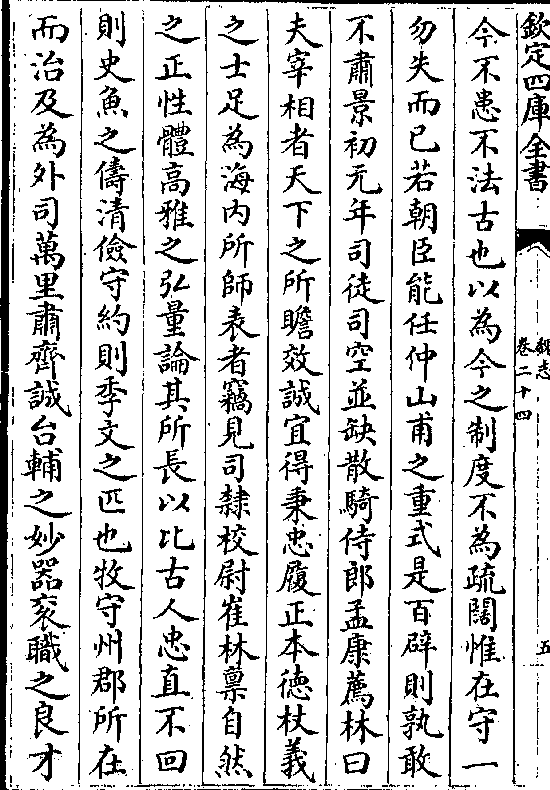 欽定四庫全書
魏志
卷二十四
五
今不患不法古也以為今之制度不為疏闊惟在守一
勿失而已若朝臣能任仲山甫之重式是百辟則孰敢
不肅景初元年司徒司空並缺散騎侍郎孟康薦林曰
夫宰相者天下之所瞻效誠宜得秉忠履正本德杖義
之士足為海内所師表者竊見司隸校尉崔林稟自然
之正性體高雅之弘量論其所長以比古人忠直不回
則史魚之儔清儉守約則季文之匹也牧守州郡所在
而治及為外司萬里肅齊誠台輔之妙器衮職之良才